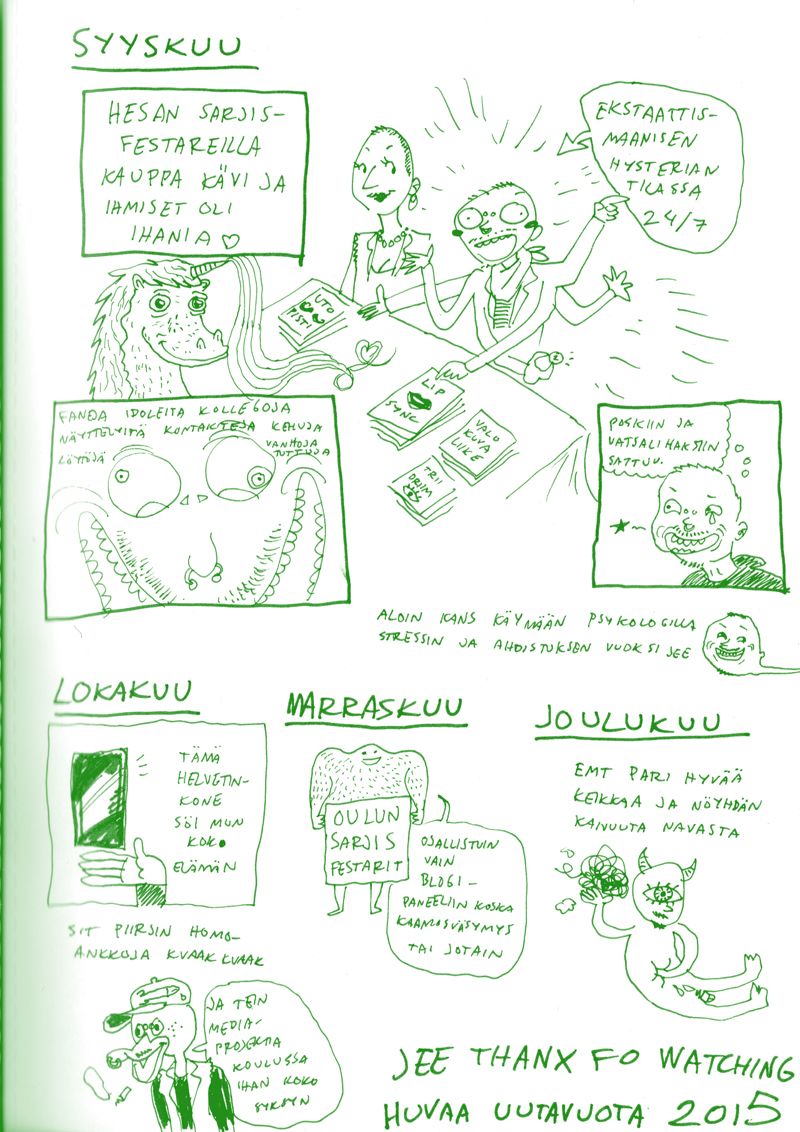 SYYSKUU
HESAN SARJIS-
FESTAREILLA
KAUPPA KÄVI JA
IHMISET OLI
IHANIA
EKSTAATTIS-
MAANISEN
HYSTERIAN
TILASSA
24/7
UTO
PISTI
LIP
SYNC
VALO
KUVA
LIIKE
TRII
DRIIM
FANEJA IDOLEITA KOLLEGOJA
NÄYTTELYITÄ KONTAKTEJA KEHUJA
LÖYTÖJÄ VANHOJA
TUTTUJA
POSKIIN JA
VATSALIHAKSIIN
SATTUU.
ALOIN KANS KÄYMÄÄN PSYKOLOGILLA
STRESSIN JA AHDISTUKSEN VUOKSI JEE
LOKAKUU
TÄMÄ
HELVETIN-
KONE
SÖI MUN
KOKO
ELÄMÄN
SIT PIIRSIN HOMO-
ANKKOJA KVAAK KVAAK
JA TEIN
MEDIA-
PROJEKTIA
KOULUSSA
IHAN KOKO
SYKSYN
MARRASKUU
OULUN
SARJIS
FESTARIT
OSALLISTUIN
VAIN
BLOGI-
PANEELIIN KOSKA
KAAMOSVÄSYMYS
TAI JOTAIN
JOULUKUU
EMT PARI HYVÄÄ
KEIKKAA JA NÖYHDÄN
KANUUTA NAVASTA
JEE THANX FO WATCHING
HUVAA UUTAVUOTA 2015